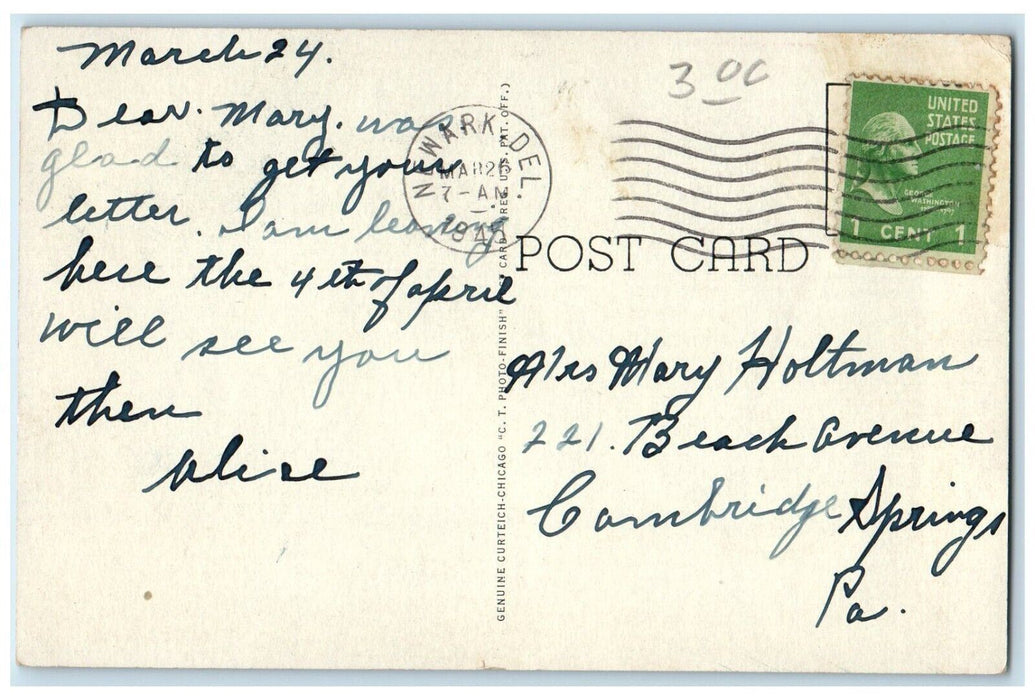 March 24.
Dear. Mary. was
glad to get your
letter. I am leaving
here the 4th of april
will see you
then
Alise
GENUINE CURTEICH-CHICAGO "C. T. PHOTO-FINISH" POST CARD
U.S. PAT. OFF.)
NEWARK, DEL.
7-AM
3 00
UNITED
STATES
POSTAGE
GEORGE
WASHINGTON
1 CENT 1
POST CARD
Mrs Mary Holtman
221. Beach Avenue
Cambridge Springs
Pa.